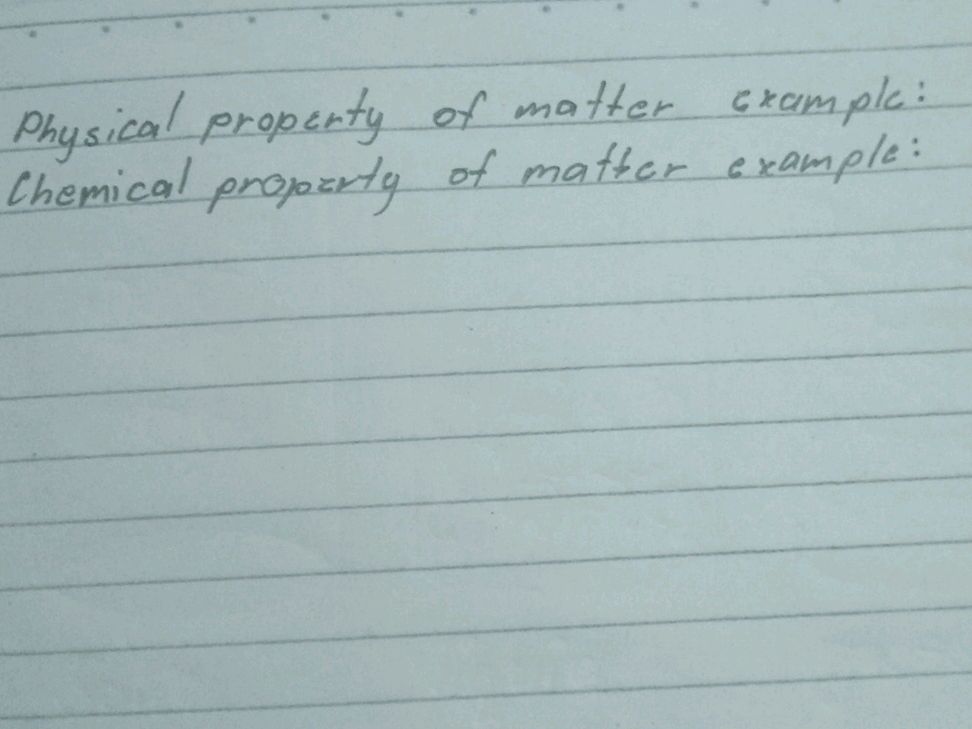 Physical property of matter example:
Chemical property of matter example: